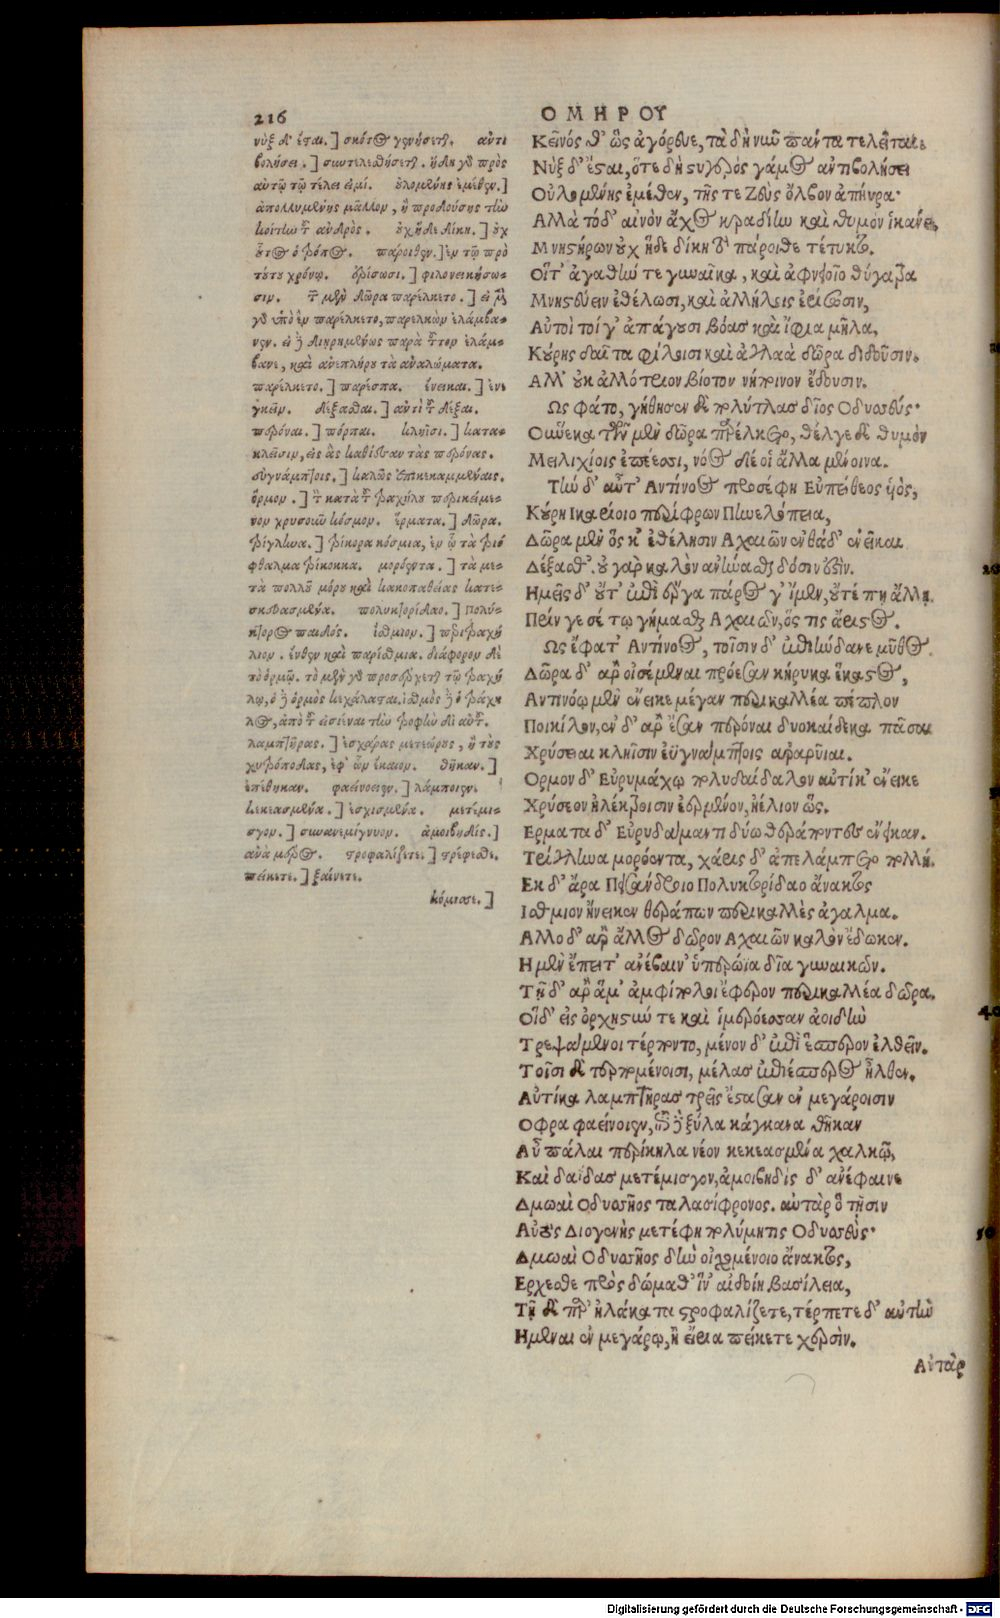 216
ΟΜΗΡΟΥ
νὺξ δ' ἔσται.] σκότος γενήσεται. ἀντι
βολήσει.] συντελεσθήσεται. ἤδη γὰρ πρὸς
αὐτῷ τῷ τέλει εἰμί. οὐλομένης ἐμέθεν.]
ἀπολλυμένης μᾶλλον, ἢ προδούσης τὴν
κοίτην τοῦ ἀνδρός. οὐχ ἥδε δίκη.] οὐχ
οὗτος ὁ τρόπος. πάροιθεν.] ἐν τῷ πρὸ
τούτου χρόνῳ. ἐρίσωσι.] φιλονεικήσω-
σιν. τοῦ μὲν δῶρα παρέλκετο.] εἰ μὲν
γὰρ ὑπὸ ἓν παρέλκετο, παρέλκων ἐλάμβα-
νεν. εἰ δὲ διῃρημένως παρὰ τοῦτον ἐλάμ-
βανε, καὶ ἀνεπλήρου τὰ ἀναλώματα.
παρέλκετο.] παρέσπα. ἐνεῖκαι.] ἐνε
γκεῖν. δέξασθαι.] ἀντὶ τοῦ δέξαι.
περόναι.] πόρπαι. κληῗσι.] κατα-
κλεῖσιν, εἰς ἃς καθίεσαν τὰς περόνας.
εὐγνάμπτοις.] καλῶς ἐπικεκαμμέναις.
ὅρμον.] τὸν κατὰ τοῦ τραχήλου περικείμε-
νον χρυσοῦν κόσμον. ἕρματα.] δῶρα.
τρίγληνα.] τρίκορα κόσμια, ἐν ᾧ τὰ τριό
φθαλμα τρίκοκκα. μορόεντα.] τὰ με-
τὰ πολλοῦ μόρου καὶ κακοπαθείας κατε-
σκευασμένα. πολυκτορίδαο.] Πολύ-
κτορος παιδός. ἴσθμιον.] περιτραχή
λιον. ἔνθεν καὶ παρίσθμια. διάφορον δὲ
τὸ ὅρμῳ. τὸ μὲν γὰρ προσέρχεται τῷ τραχή
λῳ, ὁ δὲ ὅρμος κεχάλασται. ἰσθμὸς δὲ ὁ τράχη
λος, ἀπὸ τοῦ εἰσιέναι τὴν τροφὴν δι' αὐτοῦ.
λαμπτῆρας.] ἐσχάρας μετεώρους, ἢ τοὺς
χυτρόποδας, ἐφ' ὧν ἔκαιον. θῆκαν.]
ἐπέθηκαν. φαείνοιεν.] λάμποιεν.
κεκεασμένα.] ἐσχισμένα. μετέμι-
σγον.] συνανεμίγνυον. ἀμοιβηδίς.]
ἀνὰ μέρος. στροφαλίζετε.] στρέφεσθε.
πείκετε.] ξαίνετε.
κόμισε.]
Κεῖνός θ' ὣς ἀγόρευε, τὰ δὴ νῦν πάντα τελεῖται.
Νὺξ δ' ἔσται, ὅτε δὴ στυγερὸς γάμος ἀντιβολήσει
Οὐλομένης ἐμέθεν, τῆς τε Ζεὺς ὄλβον ἀπηύρα·
Αλλὰ τόδ' αἰνὸν ἄχος κραδίην καὶ θυμὸν ἱκάνει,
Μνηστήρων οὐχ ἥδε δίκη τὸ πάροιθε τέτυκτο.
Οἵτ' ἀγαθήν τε γυναῖκα, καὶ ἀφνειοῖο θύγατρα
Μνηστεύειν ἐθέλωσι, καὶ ἀλλήλοις ἐρίσωσιν,
Αὐτοὶ τοί γ' ἀπάγουσι βόας καὶ ἴφια μῆλα,
Κούρης δαῖτα φίλοισι καὶ ἀγλαὰ δῶρα διδοῦσιν.
Αλλ' οὐκ ἀλλότριον βίοτον νήποινον ἔδουσιν.
Ως φάτο, γήθησεν δὲ πολύτλας δῖος Οδυσσεύς·
Οὕνεκα τῶν μὲν δῶρα παρέλκετο, θέλγε δὲ θυμὸν
Μειλιχίοις ἐπέεσσι, νόος δέ οἱ ἄλλα μενοίνα.
Τὴν δ' αὖτ' Αντίνοος προσέφη Εὐπείθεος υἱὸς,
Κούρη Ικαρίοιο περίφρων Πηνελόπεια,
Δῶρα μὲν ὅς κ' ἐθέλησιν Αχαιῶν ἐνθάδ' ἐνεῖκαι
Δέξασθ'. οὐ γὰρ καλὸν ἀνήνασθαι δόσιν ἐστίν.
Ημεῖς δ' οὔτ' ἐπὶ ἔργα πάρος γ' ἴμεν, οὔτέ πη ἄλλῃ.
Πείν γε σέ τῳ γήμασθαι Αχαιῶν, ὅς τις ἄριστος.
Ως ἔφατ' Αντίνοος, τοῖσιν δ' ἐπιήνδανε μῦθος.
Δῶρα δ' ἄρ' οἰσέμεναι πρόεσαν κήρυκα ἕκαστος,
Αντινόῳ μὲν ἔνεικε μέγαν περικαλλέα πέπλον
Ποικίλον, ἐν δ' ἄρ' ἔσαν περόναι δυοκαίδεκα πᾶσαι
Χρύσειαι κληῗσιν ἐϋγνάμπτοις ἀραρυῖαι.
Ορμον δ' Εὐρυμάχῳ πολυδαίδαλον αὐτίκ' ἔνεικε
Χρύσεον ἠλέκτροισιν ἐερμένον, ἠέλιον ὥς.
Ερματα δ' Εὐρυδάμαντι δύω θεράποντες ἔνεικαν.
Τρίγληνα μορόεντα, χάρις δ' ἀπελάμπετο πολλή.
Εκ δ' ἄρα Πεισάνδροιο Πολυκτορίδαο ἄνακτος
Ισθμιον ἤνεικεν θεράπων περικαλλὲς ἄγαλμα.
Αλλο δ' ἄρ' ἄλλος δῶρον Αχαιῶν καλὸν ἔδωκεν.
Η μὲν ἔπειτ' ἀνέβαιν' ὑπερώϊα δῖα γυναικῶν.
Τῇ δ' ἄρ' ἅμ' ἀμφίπολοι ἔφερον περικαλλέα δῶρα.
Οἱ δ' εἰς ὀρχηστύν τε καὶ ἱμερόεσσαν ἀοιδὴν
Τρεψάμενοι τέρποντο, μένον δ' ἐπὶ ἕσπερον ἐλθεῖν.
Τοῖσι δὲ τερπομένοισι, μέλας ἐπὶ ἕσπερος ἦλθεν.
Αὐτίκα λαμπτῆρας τρεῖς ἔστασαν ἐν μεγάροισιν
Οφρα φαείνοιεν, περὶ δὲ ξύλα κάγκανα θῆκαν
Αὖ πάλαι περίκηλα νέον κεκεασμένα χαλκῷ,
Καὶ δαΐδας μετέμισγον, ἀμοιβηδὶς δ' ἀνέφαινε
Δμωαὶ Οδυσσῆος ταλασίφρονος. αὐτὰρ ὃ τῇσιν
Αὐτὸς Διογενὴς μετέφη πολύμητις Οδυσσεύς·
Δμωαὶ Οδυσσῆος δὴν οἰχομένοιο ἄνακτος,
Ερχεσθε πρὸς δώμαθ' ἵν' αἰδοίη βασίλεια,
Τῇ δὲ παρ' ἠλάκατα στροφαλίζετε, τέρπετε δ' αὐτὴν
Ημεναι ἐν μεγάρῳ, ἢ εἴρια πείκετε χερσίν.
Αὐτὰρ
Digitalisierung gefördert durch die Deutsche Forschungsgemeinschaft - DFG